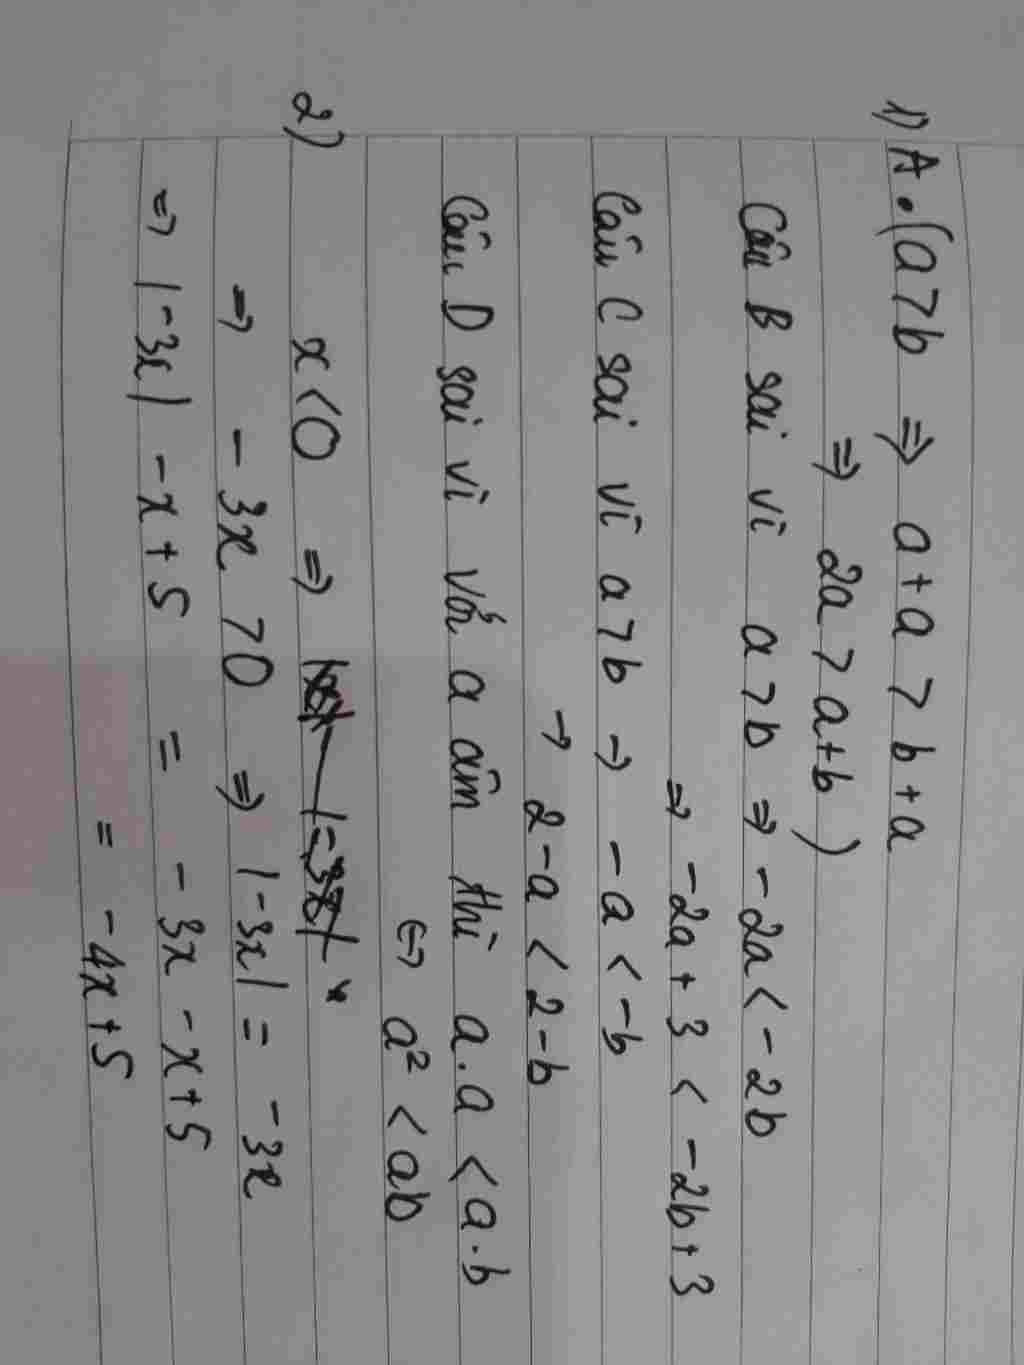 1) A. (a > b ⇒ a + a > b + a
⇒ 2a > a + b)
Câu B sai vì a > b ⇒ -2a < -2b
⇒ -2a + 3 < -2b + 3
Câu C sai vì a > b → -a < -b
→ 2 - a < 2 - b
Câu D sai vì với a âm thì a.a < a.b
⇔ a² < ab
2) x < 0 ⇒
⇒ -3x > 0 ⇒ |-3x| = -3x
⇒ |-3x| - x + 5 = -3x - x + 5
= -4x + 5